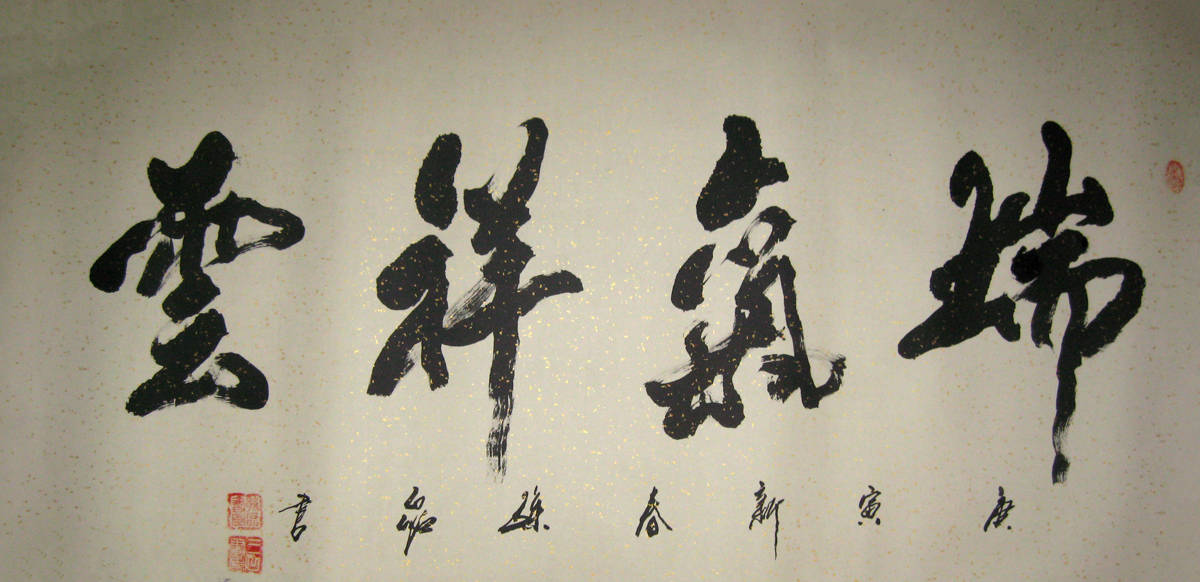 瑞氣祥雲
庚寅新春 書